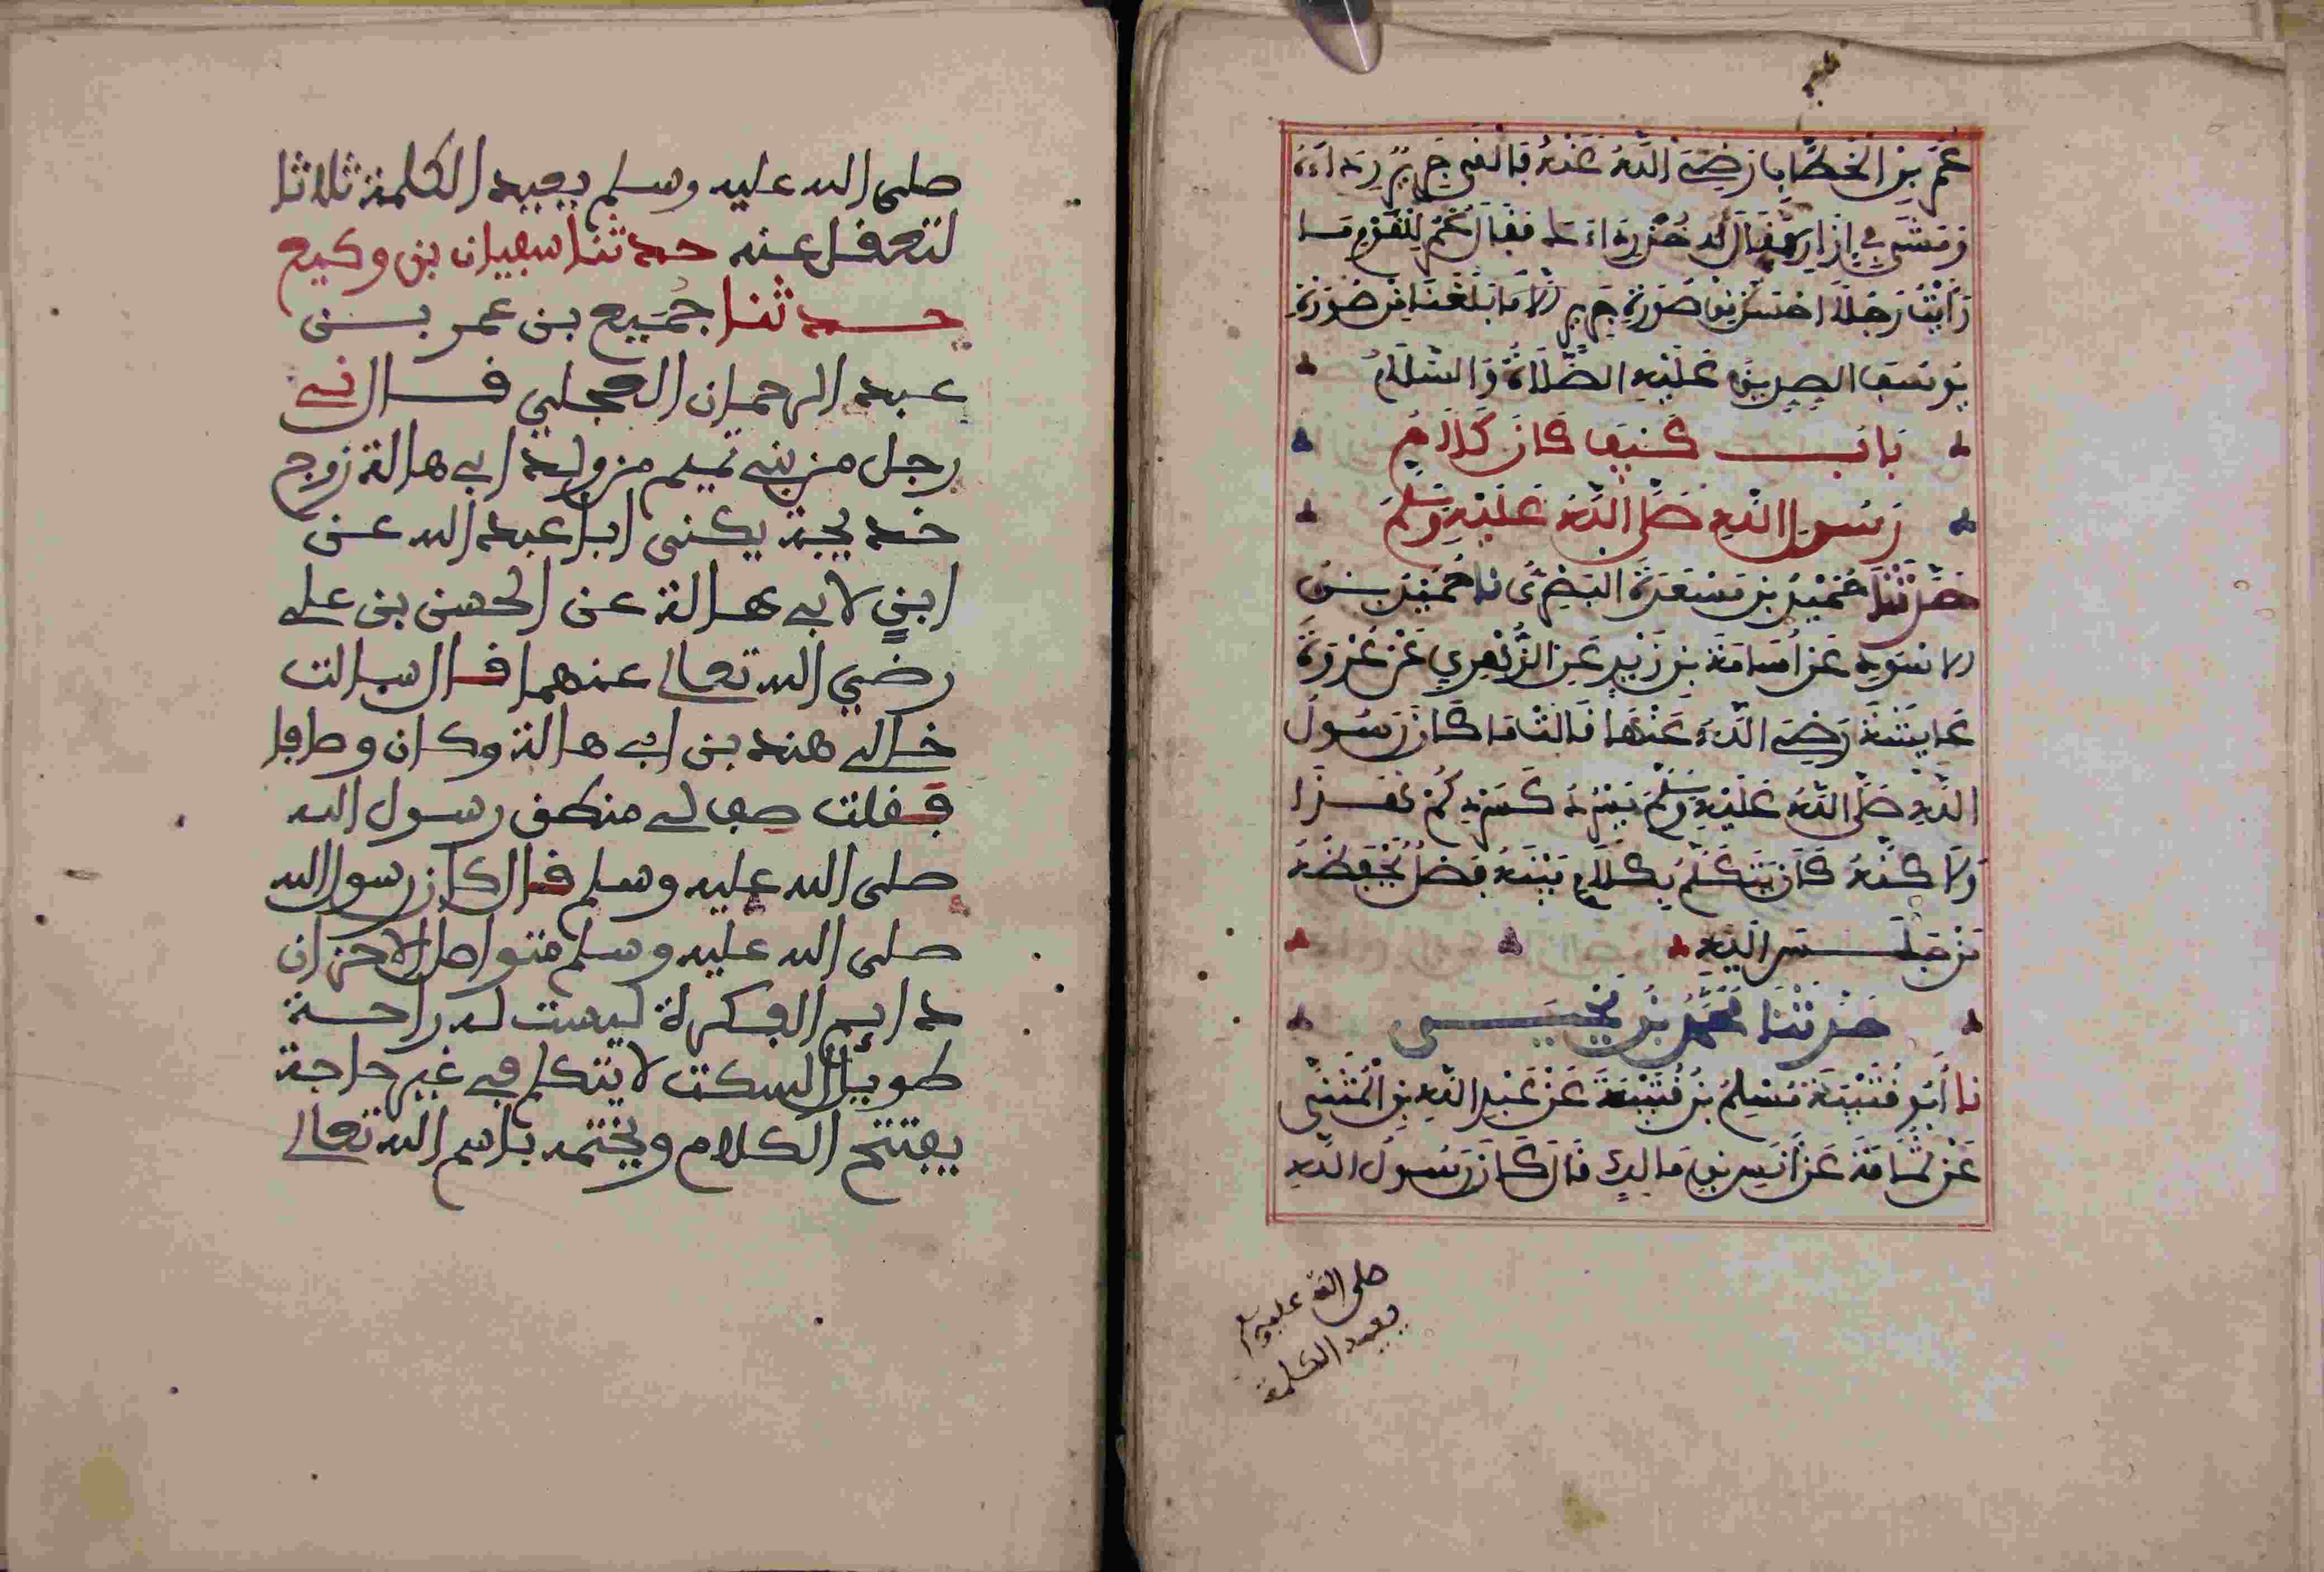 عُمَرَ بْنِ الْخَطَّابِ رَضِيَ اللَّهُ عَنْهُ فَالْفَى جَرِيرٌ رِدَاءَهُ
وَمَشَى فِي إِزَارٍ فَقَالَ لَهُ خُذْ رِدَاءَكَ فَقَالَ عُمَرُ لِلْقَوْمِ مَا
رَأَيْتُ رَجُلًا أَحْسَنَ مِنْ صُورَةِ جَرِيرٍ إِلَّا مَا بَلَغَنَا مِنْ صُورَةِ
يُوسُفَ الصِّدِّيقِ عَلَيْهِ الصَّلَاةُ وَالسَّلَامُ
بَابُ كَيْفَ كَانَ كَلَامُ
رَسُولِ اللَّهِ صَلَّى اللَّهُ عَلَيْهِ وَسَلَّمَ
حَدَّثَنَا حُمَيْدُ بْنُ مَسْعَدَةَ الْبَصْرِيُّ نَا حُمَيْدُ بْنُ
الأسْوَدِ عَنْ أُسَامَةَ بْنِ زَيْدٍ عَنِ الزُّهْرِيِّ عَنْ عُرْوَةَ
عَنْ عَايِشَةَ رَضِيَ اللَّهُ عَنْهَا قَالَتْ مَا كَانَ رَسُولُ
اللَّهِ صَلَّى اللَّهُ عَلَيْهِ وَسَلَّمَ يَسْرُدُ كَسَرْدِكُمْ هَذَا
وَلَكِنَّهُ كَانَ يَتَكَلَّمُ بِكَلَامٍ بَيِّنَةٍ فَصْلٍ يَحْفَظُهُ
مَنْ جَلَسَ إِلَيْهِ
حَدَّثَنَا مُحَمَّدُ بْنُ يَحْيَى
نَا أَبُو قُتَيْبَةَ مُسْلِمُ بْنُ قُتَيْبَةَ عَنْ عَبْدِ اللَّهِ بْنِ الْمُثَنَّى
عَنْ ثُمَامَةَ عَنْ أَنَسِ بْنِ مَالِكٍ قَالَ كَانَ رَسُولُ اللَّهِ
صلى الله عليه وسلم
يعيد الكلمة
صلى الله عليه وسلم يعيد الكلمة ثلاثا
لتعقل عنه حدثنا سفيان بن وكيع
حدثنا جُمَيع بن عمر بن
عبد الرحمان العجلي قال ني
رجل من بني تميم من ولد ابي هالة زوج
خديجة يكنى ابا عبد الله عن
ابنٍ لابي هالة عن الحسن بن علي
رضي الله تعالى عنهما قال سالت
خالي هند بن ابي هالة وكان وصافا
فقلت صف لي منطق رسول الله
صلى الله عليه وسلم قال كان رسول الله
صلى الله عليه وسلم متواصل الاحزان
دايم الفكرة ليست له راحة
طويل السكت لا يتكلم في غير حاجة
يفتتح الكلام ويختمه باسم الله تعالى